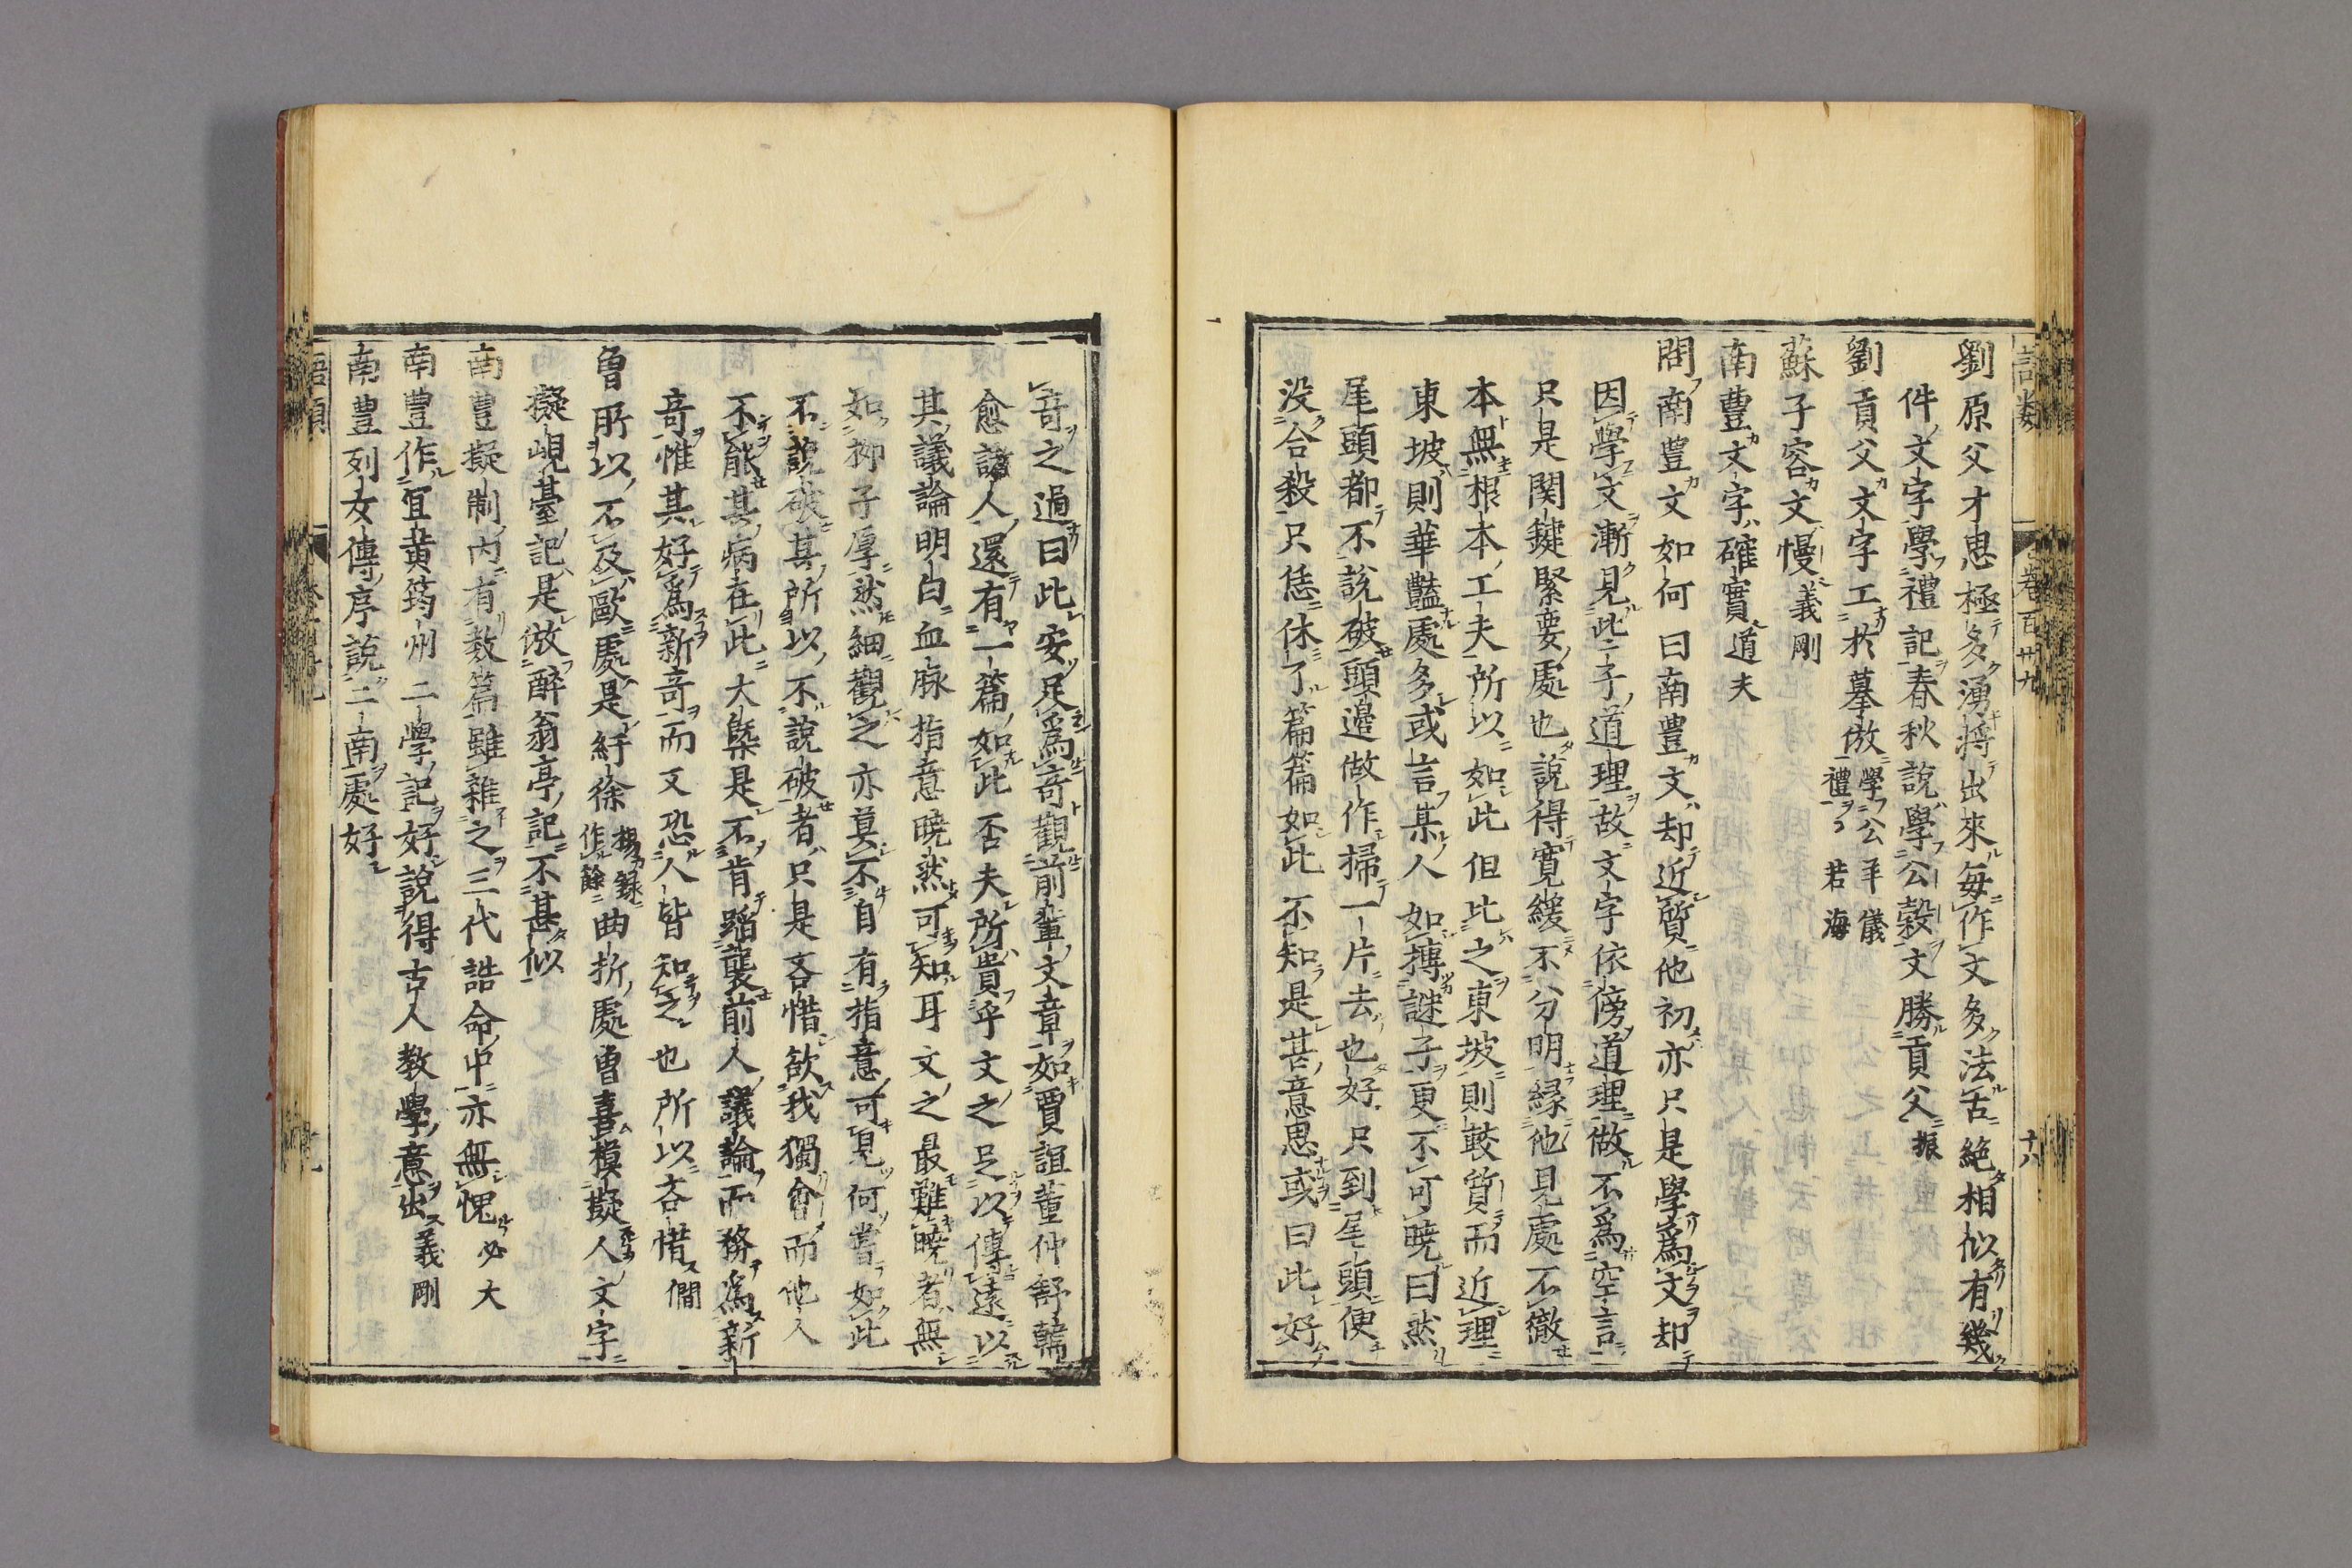 語類
卷百廿九
十八
劉原父才思極多湧將出來每作文多法古絶相似有幾
件文字學禮記春秋說學公穀文勝貢父振
劉貢父文字工於摹倣學公羊儀
禮若海
蘇子容文慢義剛
南豊文字確實道夫
問南豊文如何曰南豊文却近質他初亦只是學爲文却
因學文漸見些子道理故文字依傍道理做不爲空言
只是関鍵緊要處也說得寛緩不分明縁他見處不徹
本無根本工夫所以如此但比之東坡則較質而近理
東坡則華豔處多或言某人如搏謎子更不可曉曰然
尾頭都不說破頭邊做作掃一片去也好只到尾頭便
没合殺只恁休了篇篇如此不知是甚意思或曰此好
奇之過曰此安足爲奇觀前輩文章如賈誼董仲舒韓
愈諸人還有一篇如此否夫所貴乎文之足以傳遠以
其議論明白血脉指意曉然可知耳文之最難曉者無
如柳子厚然細觀之亦莫不自有指意可見何嘗如此
不說破其所以不說破者只是吝惜欲我獨會而他人
不能其病在此大槩是不肯蹈襲前人議論而務爲新
奇惟其好爲新奇而又恐人皆知之也所以吝惜僩
曾所以不及歐處是紆徐揚録
作餘曲折處曾喜模擬人文字
擬峴臺記是倣醉翁亭記不甚似
南豊擬制内有數篇雖雜之三代誥命中亦無愧必大
南豊作宜黄筠州二學記好說得古人教學意出義剛
南豊列女傳序說二南處好
語類